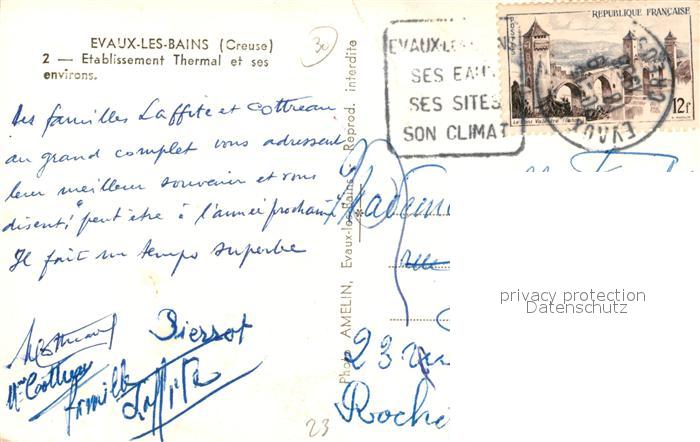 EVAUX-LES-BAINS (Creuse)
2 — Etablissement Thermal et ses
environs.
30
Les familles Laffite et Cottreau
au grand complet vous adressent
leur meilleur souvenir et vous
disent "peut être à l'année prochaine"
Il fait un temps superbe
Pierrot
Mme Cottreau
famille Laffite
23
Photo AMELIN, Evaux-les-Bains - Reprod. interdite
EVAUX-LES-BAINS
SES EAUX
SES SITES
SON CLIMAT
REPUBLIQUE FRANÇAISE
POSTES
12f.
Le Pont Valentré
CREUSE
EVAUX
Mademoi
rue
23
Roche
privacy protection
Datenschutz